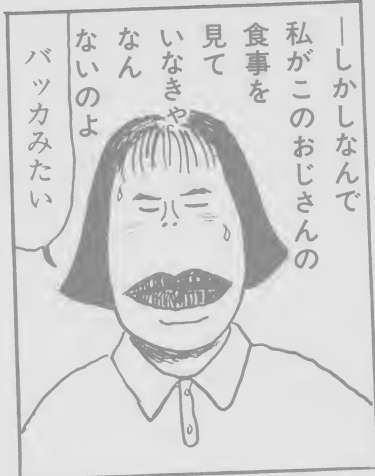 ―しかしなんで
私がこのおじさんの
食事を
見て
いなきゃ
なん
ないのよ
バッカみたい